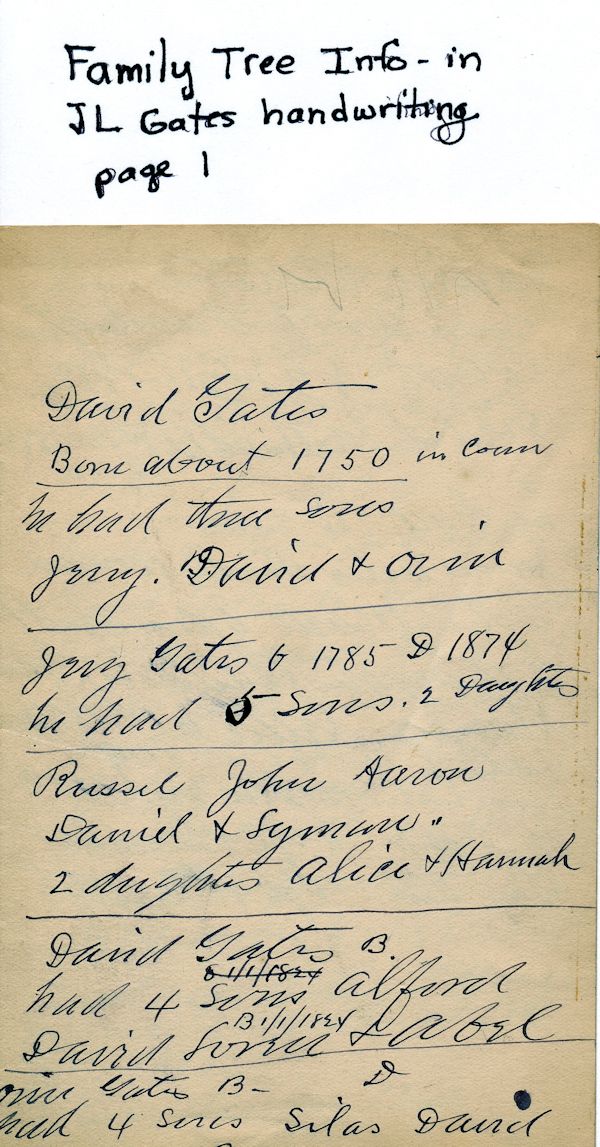 Family Tree Info - in
JL Gates handwriting
page 1
David Gates
Born about 1750 in Conn
he had three sons
Jerry. David & Orin
Jerry Gates b 1785 D 1874
he had 5 Sons. 2 Daughts
Russel John Aaron
Daniel & Lyman"
2 dughtes Alice & Hannah
David Gates B.
b 1/1/1824
had 4 Sons Alford
B 1/1/1824
David Loren & Abel
Orin Gates B- D
had 4 Sons Silas David